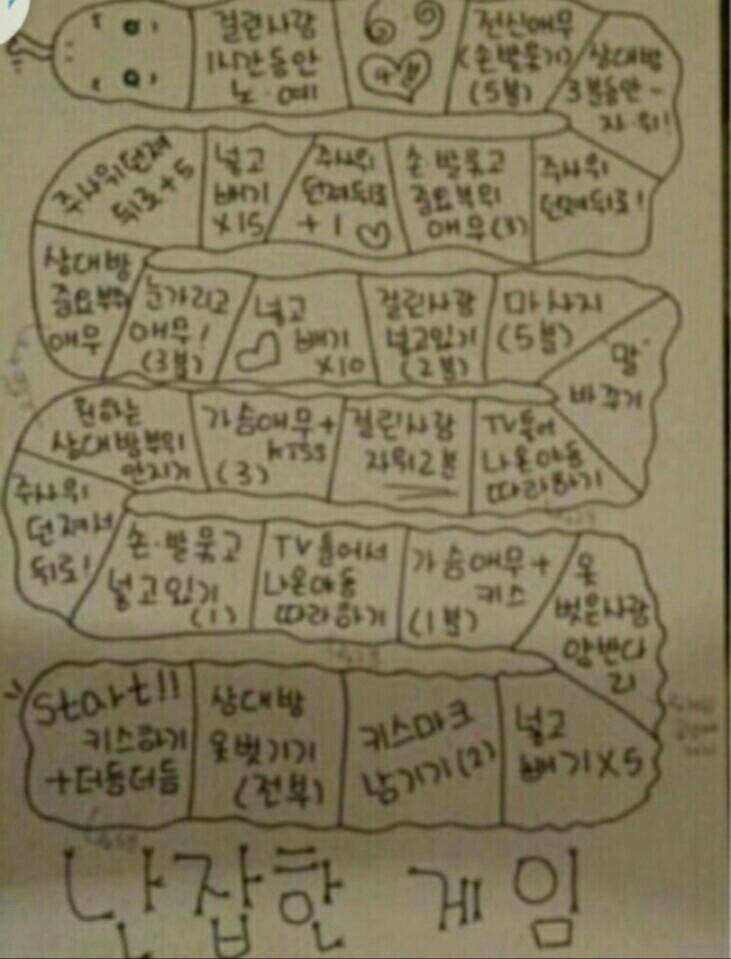 걸린사람
1시간동안
노·예
69
전신애무
(손발묶기)
(5분)
상대방
3분동안-
자·위!
주사위던져
뒤로+5
넣고
빼기
X15
주사위
던져뒤로
+1
손·발묶고
중요부위
애무(3)
주사위
던져뒤로!
상대방
중요부위
애무
눈가리고
애무!
(3분)
넣고
빼기
X10
걸린사람
넣고있기
(2분)
마사지
(5분)
"말"
바꾸기
원하는
상대방부위
만지기
가슴애무+
kiss
(3)
걸린사람
자위2분
TV틀어
나온야동
따라하기
주사위
던져서
뒤로!
손·발묶고
넣고있기
(1)
TV틀어서
나온야동
따라하기
가슴애무+
키스
(1분)
옷
벗은사람
start!!
키스하기
+더듬더듬
상대방
옷벗기기
(전부)
키스마크
남기기(2)
넣고
빼기X5
난잡한 게임